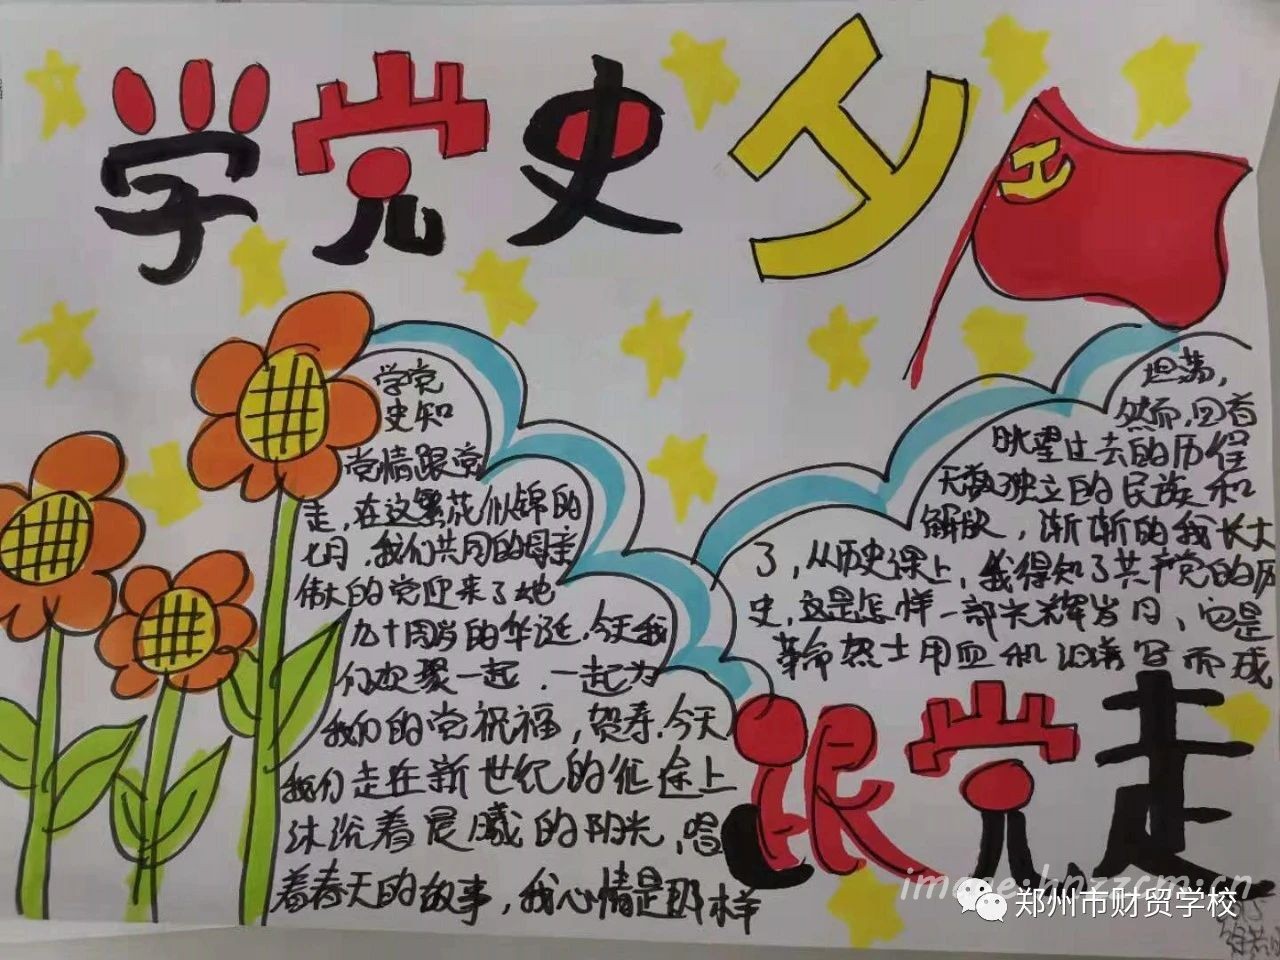 学党史
学党
史知
党情跟党
走，在这繁花似锦的
七月，我们共同的母亲
伟大的党迎来了她
九十周岁的华诞，今天我
们欢聚一起，一起为
我们的党祝福，贺寿，今天
我们走在新世纪的征途上
沐浴着晨曦的阳光，唱
着春天的故事，我心情是那样
坦荡，
然而，回首
眺望过去的历程
无数独立的民族和
解放，渐渐的我长大
了，从历史课上，我得知了共产党的历
史，这是怎样一部光辉岁月，它是
革命烈士用血和泪谱写而成
跟党走
image.hnzzcm.cn
郑州市财贸学校